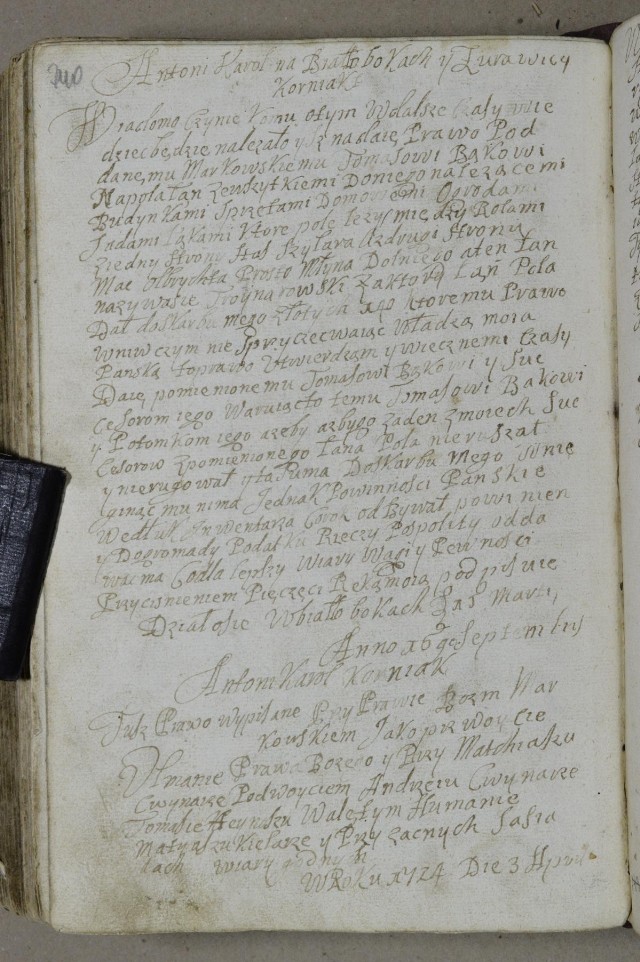 240
Antoni Karol na Białłobokach y Zurawicy
Korniakt
Wiadomo Czynie Komu otym Wdalsze Czasy wie
dziec będzie nalezało ysz nadaię Prawo Pod
danemu Markowskiemu Tomasowi Bąkowi
Nappłałan Zewszytkiemi Doniego nalezącemi
Budynkami Sprzetami Domowemi Ogrodami
Sadami Łąkami Ktore pole lezy między Rolami
Ziedny Strony Hus Szylara Azdrugi Strony
Mac Olbrychta Prosto Młyna Dolnego aten Łan
nazywasie Troynarowski Zaktory Łąn Pola
Dał doskarbu mego złotych ktoremu Prawo
wniwczym nie Sprzyciecwaiąc Władzą moią
Panską toprawo Utwierdzam y wiecznemi Czasy
Daię pomienionemu Tomasowi Bąkowi y Suc
Cesorom iego Waruiącto temu Tomasowi Bąkowi
y Potomkom iego azeby azbygo Zaden Zmoiech Suc
Cesorow Zpomienionego Łana Pola nieruszał
y nierugował yta Suma Doskarbu Mego winię
ginąć mu nima Jednak Powinnosci Panskie
Wedłuk Inwentarza Corok odbywał powinien
y Dogromady Podatku Rzeczy Pospolity odda
wac ma Codla lepszy Wiary Wagi y Pewnosci
Przycisnieniem Pięczęci Ręką moią podpisuie
Działosie Wbiałobokach Marti
Anno Septembris
Antoni Karol Korniak
Tusz Prawo wypisane Przy Prawie Bozem Mar
kowskiem Jako przwoycie
Prawa Bozego y Przy Matchiaszu
Cwynarze Podwoyciem Andrzeiu Cwynarze
Tomasie Heynoszu Walętym Humanie
Matyaszu Kielarze y Przy Zacnych Sąsia
dach wiary godnych
WRoku 1724 Die 3 Apri